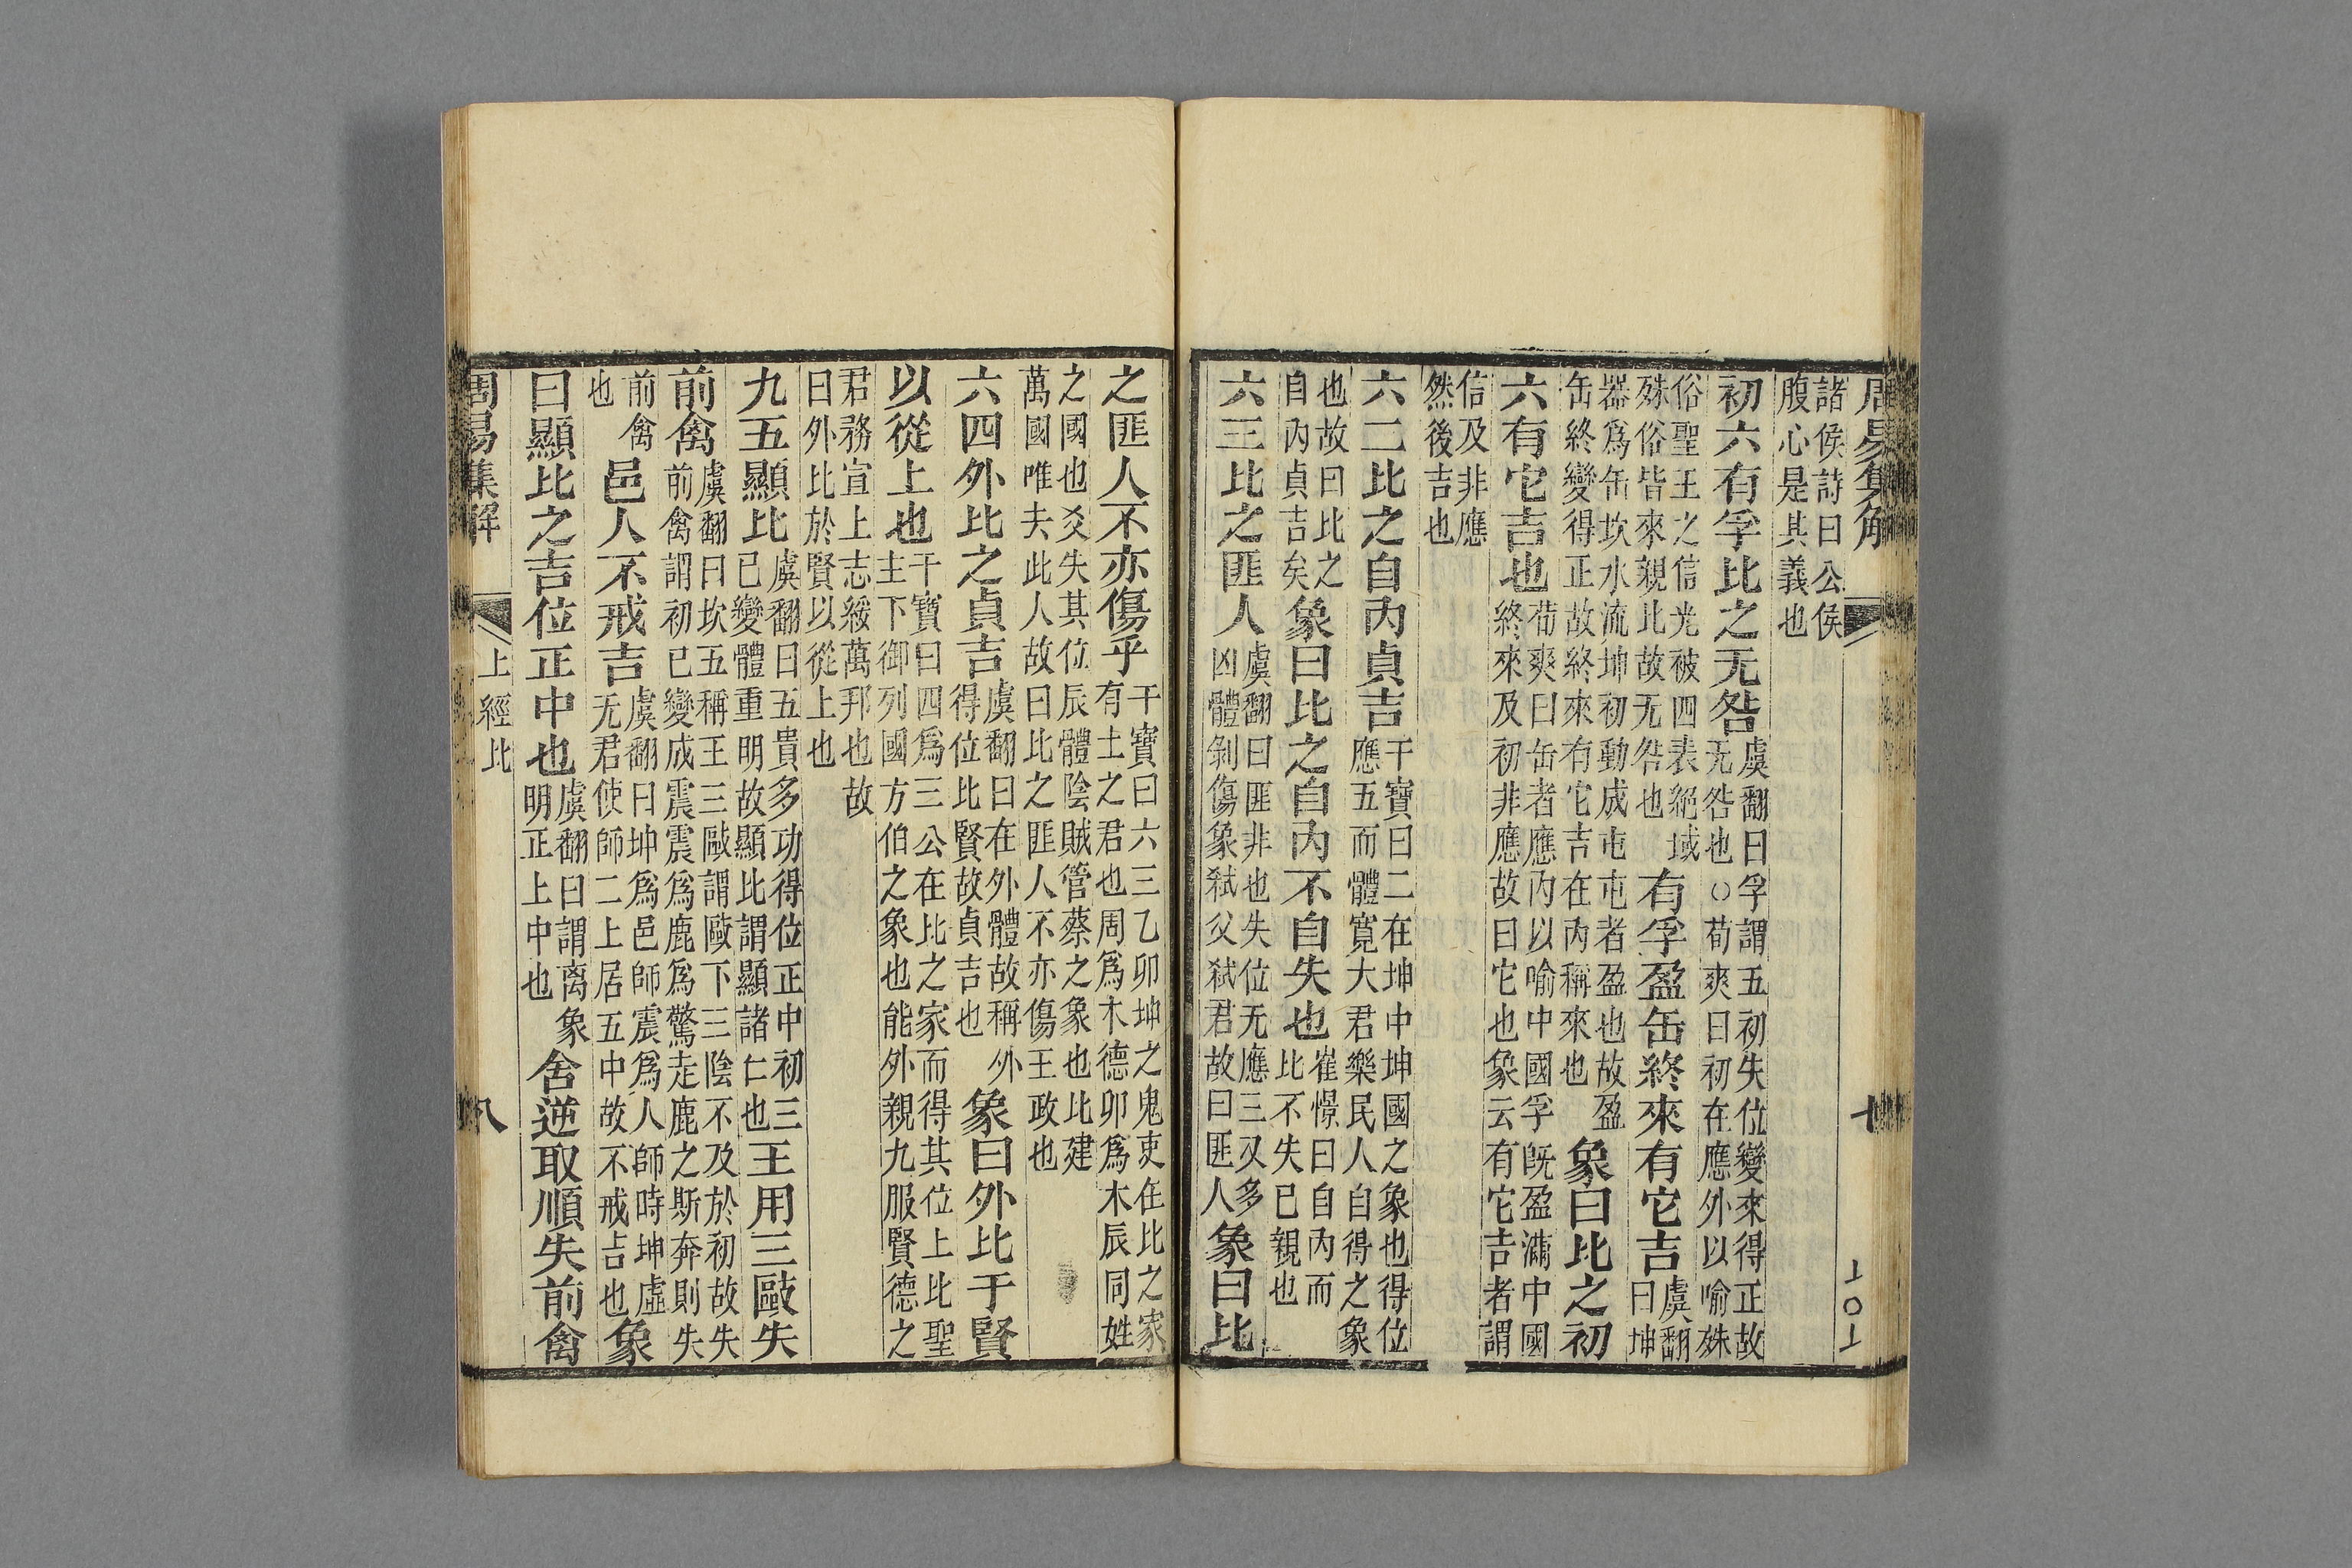 周易集解
七
諸侯詩曰公侯
腹心是其義也
初六有孚比之无咎虞翻曰孚謂五初失位變來得正故
无咎也○荀爽曰初在應外以喻殊
俗聖王之信光被四表絕域
殊俗皆來親比故无咎也有孚盈缶終來有它吉虞翻
曰坤
器爲缶坎水流坤初動成屯屯者盈也故盈
缶終變得正故終來有它吉在內稱來也象曰比之初
六有它吉也荀爽曰缶者應內以喻中國孚旣盈滿中國
終來及初非應故曰它也象云有它吉者謂
信及非應
然後吉也
六二比之自內貞吉干寶曰二在坤中坤國之象也得位
應五而體寬大君樂民人自得之象
也故曰比之
自內貞吉矣象曰比之自內不自失也崔憬曰自內而
比不失己親也
六三比之匪人虞翻曰匪非也失位无應三又多
凶體剝傷象弒父弒君故曰匪人象曰比
之匪人不亦傷乎干寶曰六三乙卯坤之鬼吏在比之家
有土之君也周爲木德卯爲木辰同姓
之國也爻失其位辰體陰賊管蔡之象也比建
萬國唯夫此人故曰比之匪人不亦傷王政也
六四外比之貞吉虞翻曰在外體故稱外
得位比賢故貞吉也象曰外比于賢
以從上也干寶曰四爲三公在比之家而得其位上比聖
主下御列國方伯之象也能外親九服賢德之
君務宣上志綏萬邦也故
曰外比於賢以從上也
九五顯比虞翻曰五貴多功得位正中初三
已變體重明故顯比謂顯諸仁也王用三敺失
前禽虞翻曰坎五稱王三敺謂敺下三陰不及於初故失
前禽謂初已變成震震爲鹿爲驚走鹿之斯奔則失
前禽
也邑人不戒吉虞翻曰坤爲邑師震爲人師時坤虛
无君使師二上居五中故不戒吉也象
曰顯比之吉位正中也虞翻曰謂离象
明正上中也舍逆取順失前禽
周易集解
上經比
八